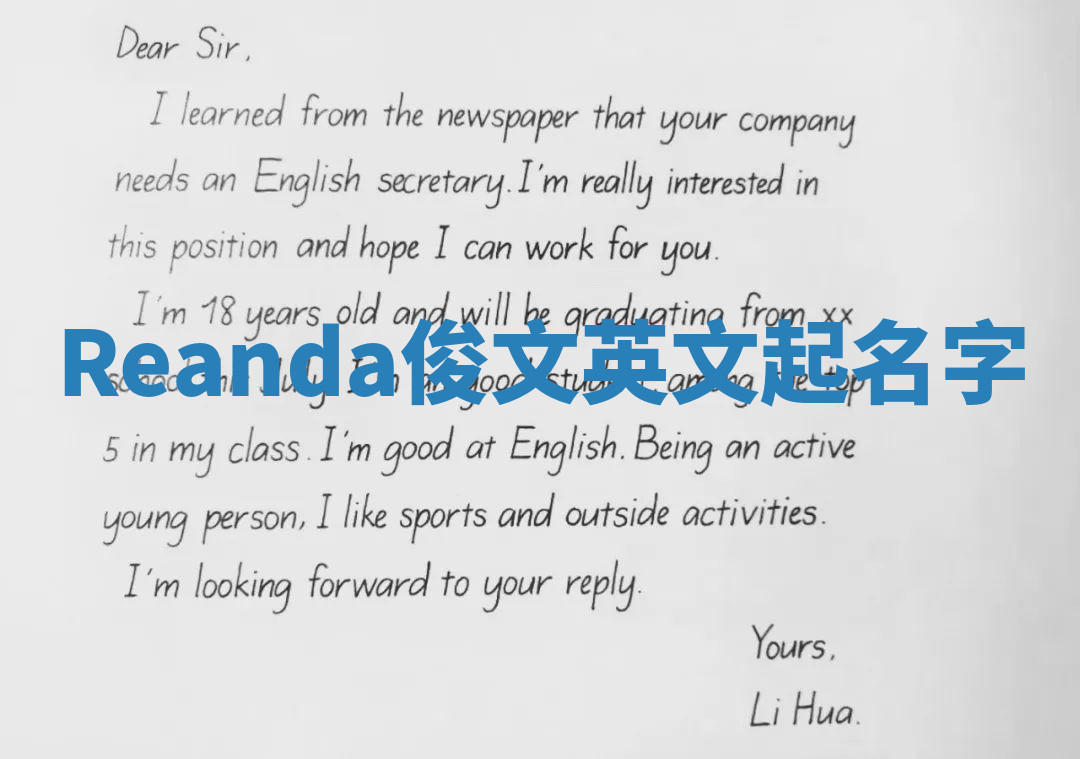 Dear Sir,
I learned from the newspaper that your company
needs an English secretary. I'm really interested in
this position and hope I can work for you.
I'm 18 years old and will be graduating from xx
Reanda俊文英文起名字
school this July. I'm a good student, among the top
5 in my class. I'm good at English. Being an active
young person, I like sports and outside activities.
I'm looking forward to your reply.
Yours,
Li Hua.